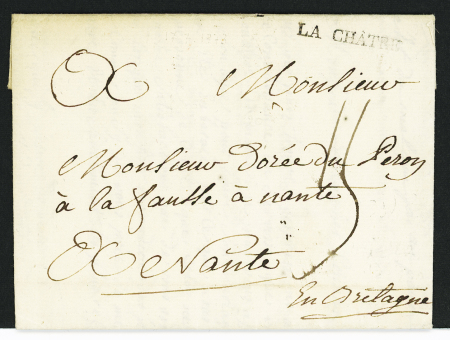 LA CHÂTRE
Monsieur
Monsieur dorée du Peron
à la fausse à nante
à Nante
En Bretagne